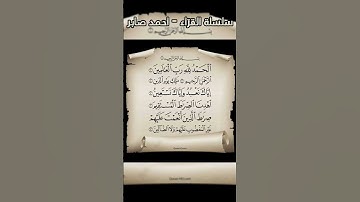 سلسلة القراء - احمد صابر
بسم الله الرحمن الرحيم
الحمد لله رب العالمين
الرحمن الرحيم ملك يوم الدين
إياك نعبد وإياك نستعين
اهدنا الصراط المستقيم
صراط الذين أنعمت عليهم
غير المغضوب عليهم ولا الضالين